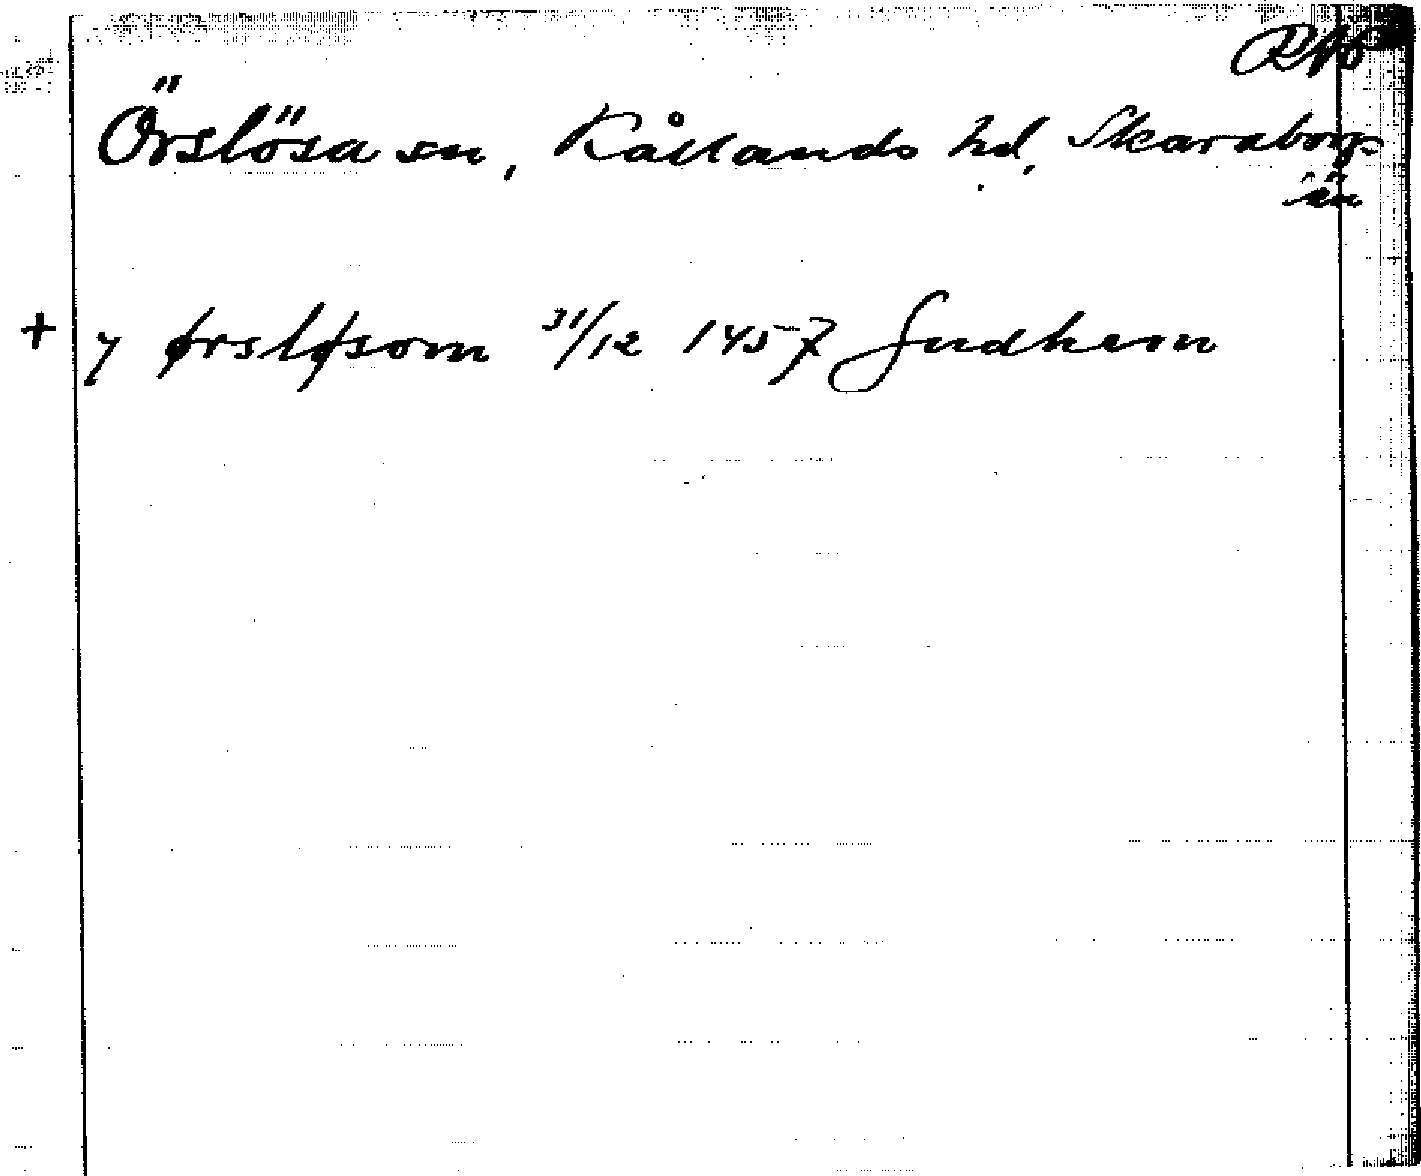 RAp
Örslösa sn, Kållands hd, Skaraborgs
län
+ y ørsløsom 31/12 1457 Gudhem